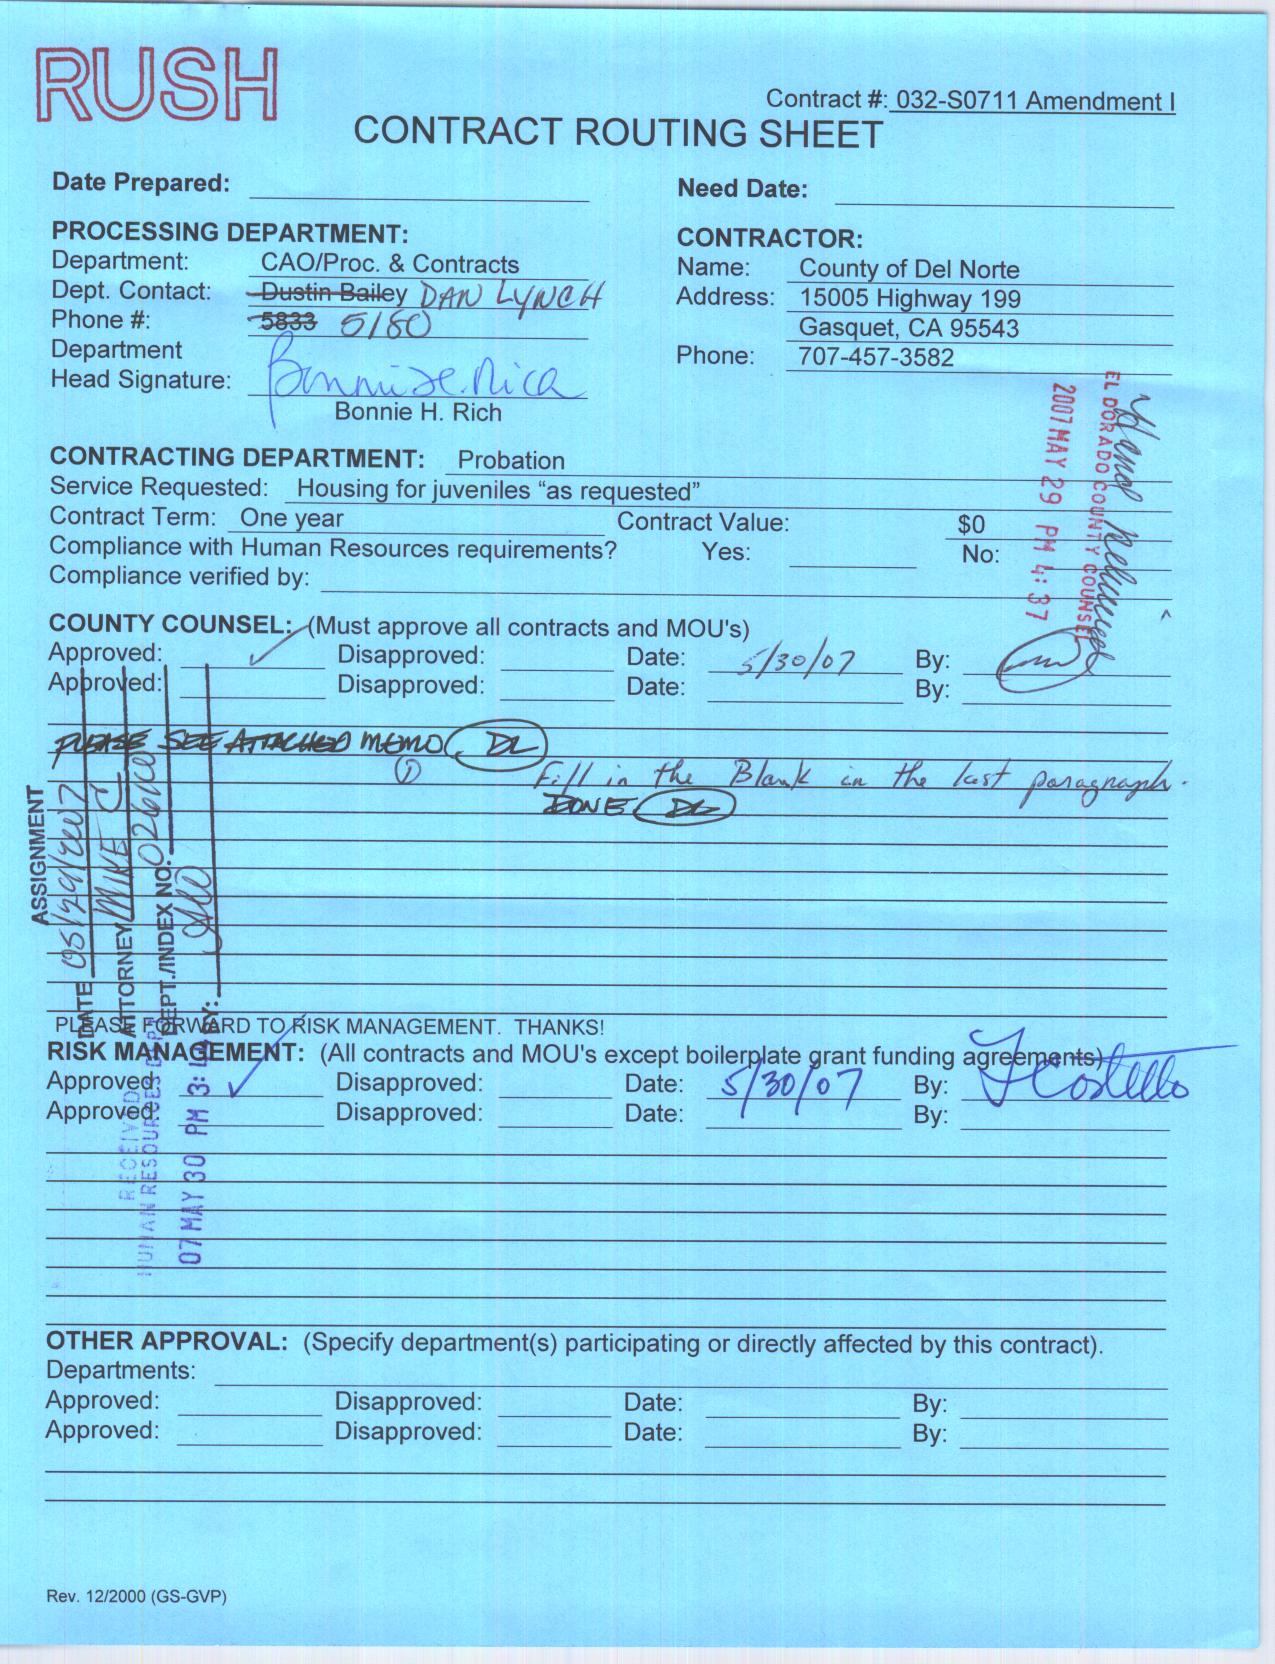 RUSH
Contract #: 032-S0711 Amendment I
CONTRACT ROUTING SHEET
Date Prepared:
Need Date:
PROCESSING DEPARTMENT:
Department: CAO/Proc. & Contracts
Dept. Contact: Dustin Bailey DAN LYNCH
Phone #: 5833 5180
Department
Head Signature: Bonnie H. Rich
Bonnie H. Rich
CONTRACTOR:
Name: County of Del Norte
Address: 15005 Highway 199
Gasquet, CA 95543
Phone: 707-457-3582
EL DORADO COUNTY COUNSEL
2007 MAY 29 PM 4:37
CONTRACTING DEPARTMENT: Probation
Service Requested: Housing for juveniles “as requested”
Contract Term: One year Contract Value: $0
Compliance with Human Resources requirements? Yes: No:
Compliance verified by:
COUNTY COUNSEL: (Must approve all contracts and MOU's)
Approved: ✓ Disapproved: Date: 5/30/07 By:
Approved: Disapproved: Date: By:
PLEASE SEE ATTACHED MEMO. DL
① Fill in the Blank in the last paragraph.
DONE DL
ASSIGNMENT
DATE 05/29/2007
ATTORNEY MIKE C
DEPT./INDEX NO.
BY:
PLEASE FORWARD TO RISK MANAGEMENT. THANKS!
RISK MANAGEMENT: (All contracts and MOU's except boilerplate grant funding agreements)
Approved: ✓ Disapproved: Date: 5/30/07 By: F Costello
Approved: Disapproved: Date: By:
RECEIVED
HUMAN RESOURCES DEPT
07 MAY 30 PM 3:
OTHER APPROVAL: (Specify department(s) participating or directly affected by this contract).
Departments:
Approved: Disapproved: Date: By:
Approved: Disapproved: Date: By:
Rev. 12/2000 (GS-GVP)